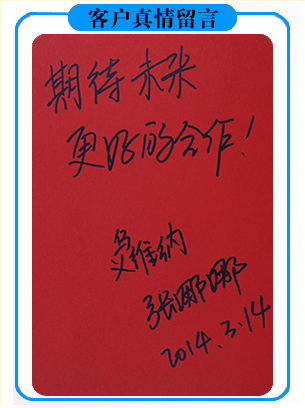 客户真情留言
期待未来
更好的合作!
曼维纳
张娜娜
2014.3.14